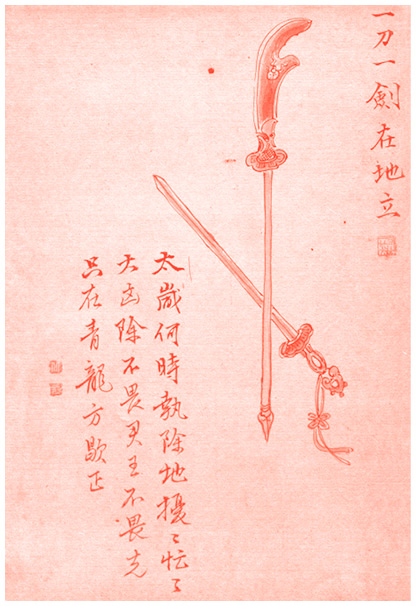 一刀一劍在地立
太歲何時執除地擾〻忙〻
大凶除不畏王不畏
只在青龍方歇正